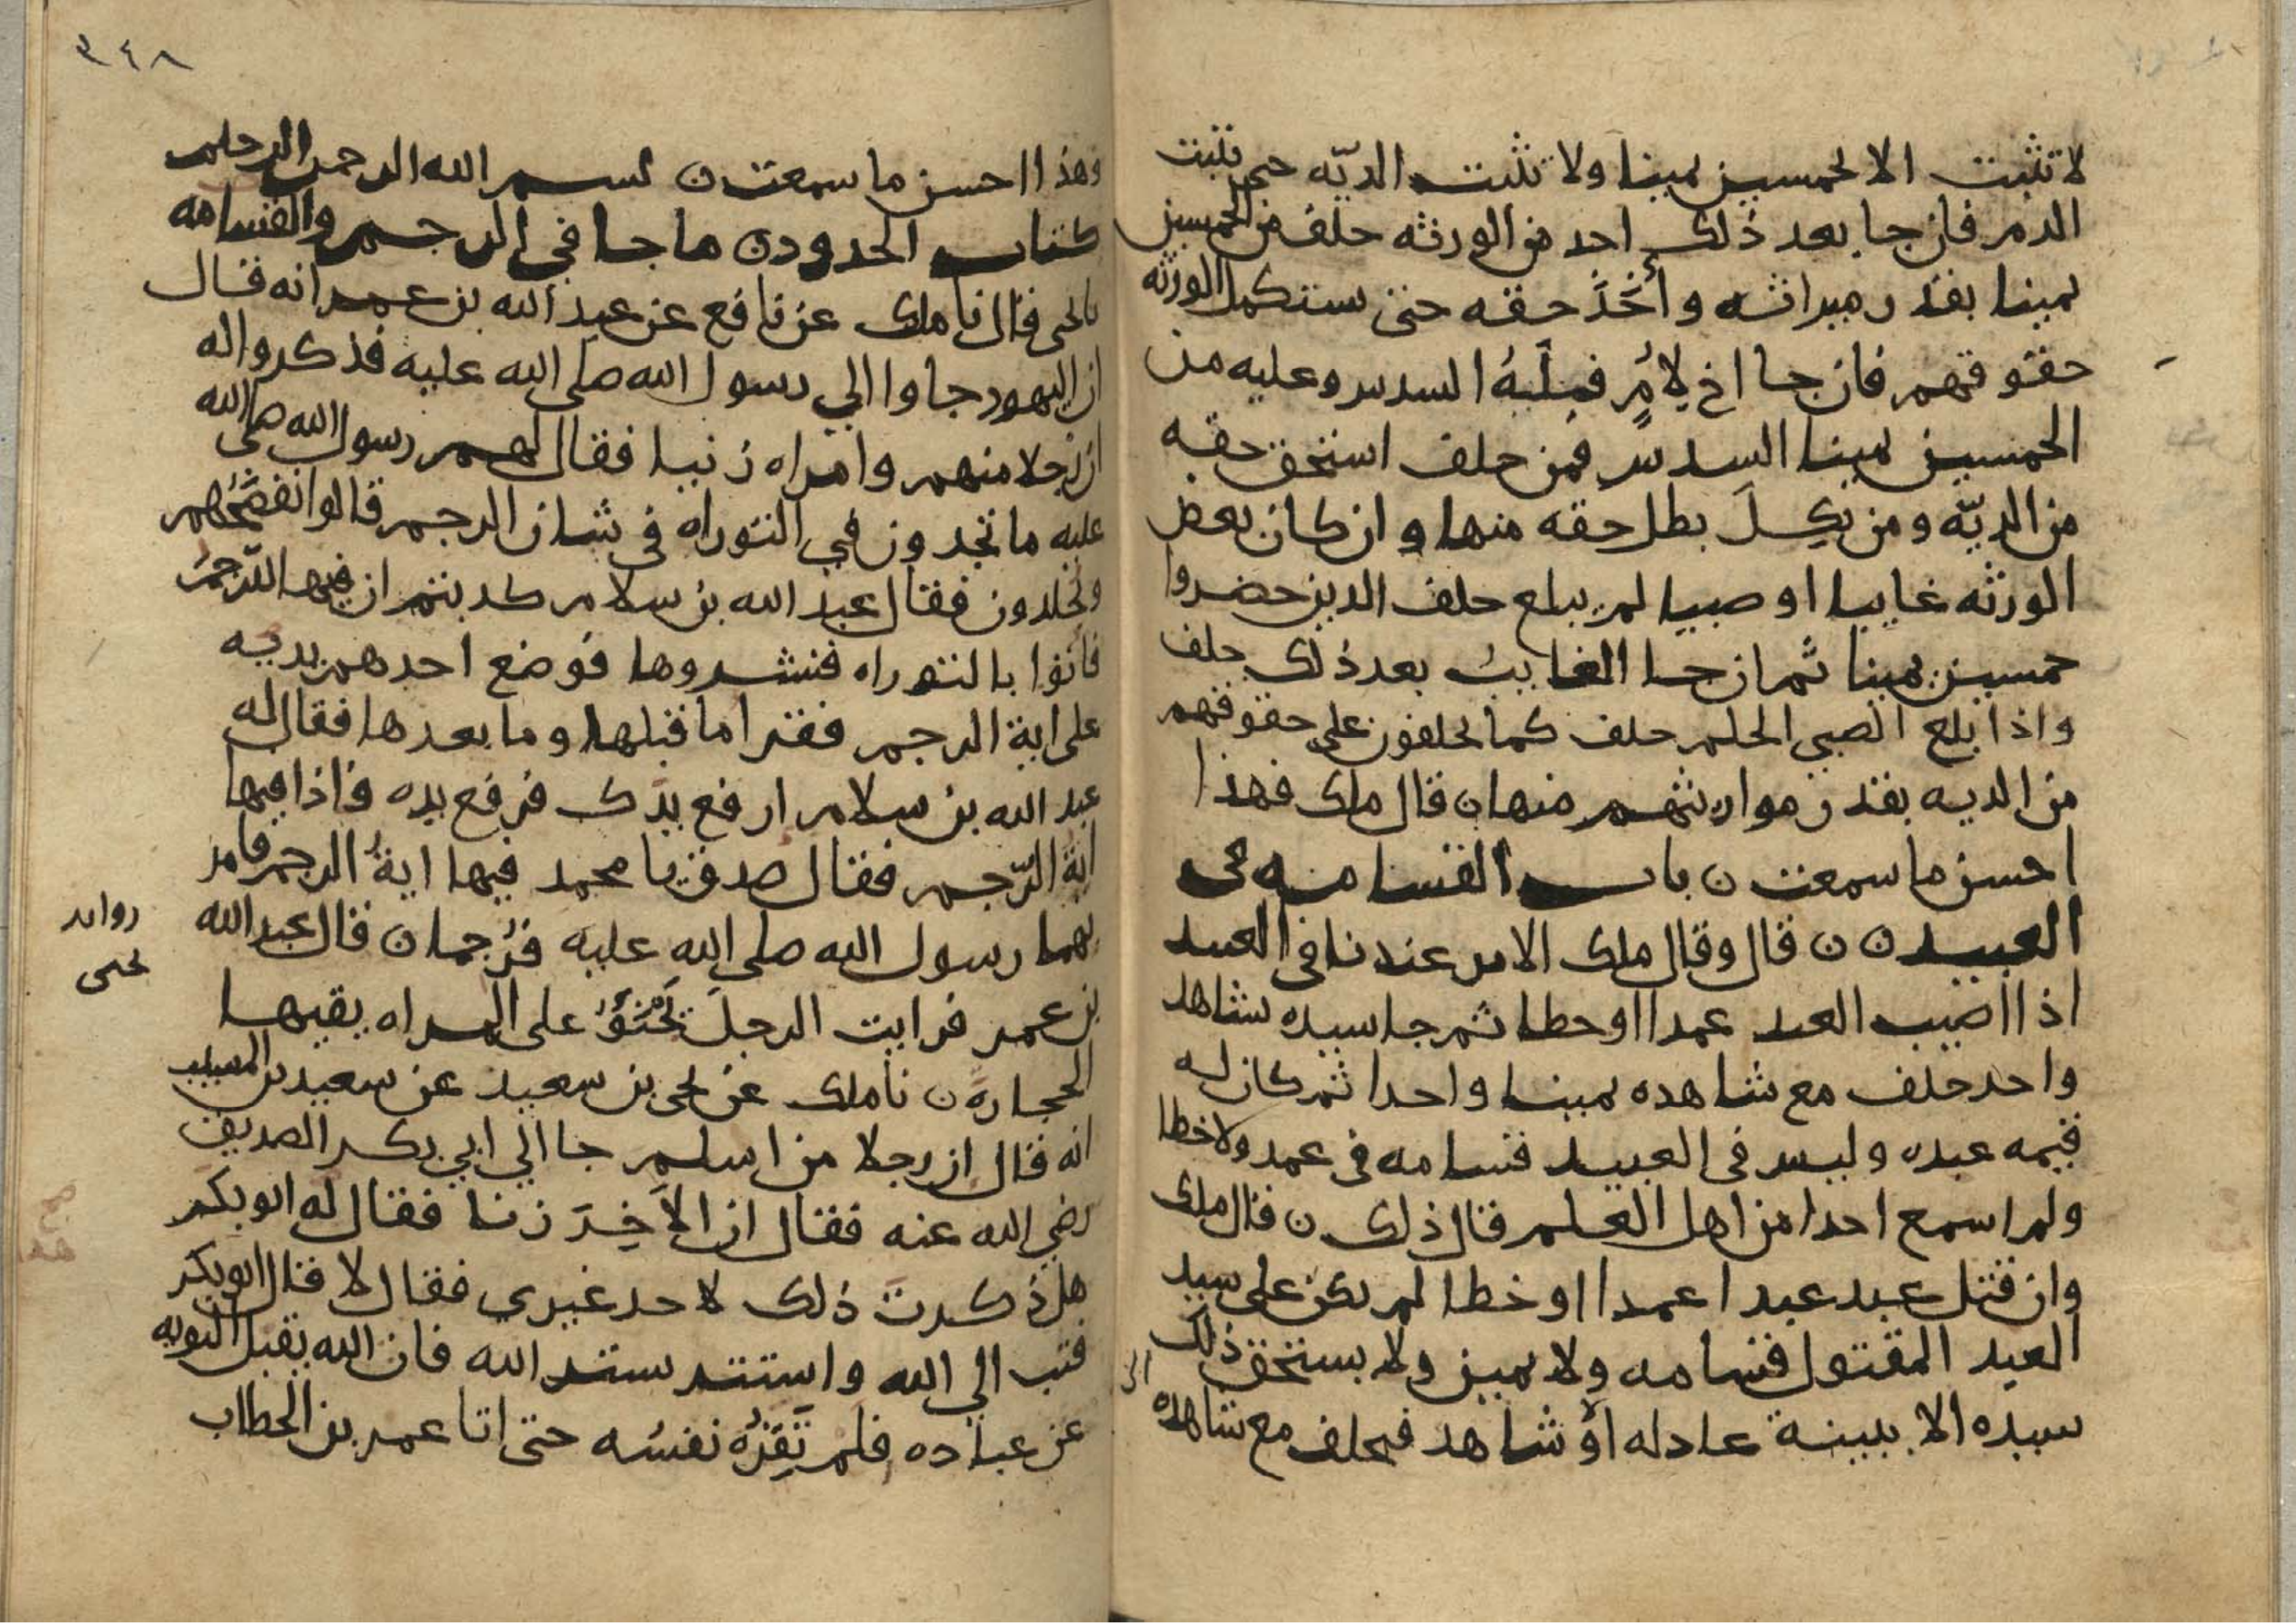 لا تثبت الا بخمسين يمينا ولا تثبت الديّه حتى تثبت
الدم فان جا بعد ذلك احد من الورثه حلف من الخمسين
يمينا بقدر ميراثه وأخذ حقه حتى يستكمل الورثه
حقوقهم فان جا اخ لامٍ فَلَهُ السدس وعليه من
الخمسين يمينا السدس فمن حلف استحق حقه
من الديّه ومن نكل بطل حقه منها وان كان بعض
الورثه غايبا او صبيا لم يبلغ حلف الذين حضروا
خمسين يمينا ثم ان جا الغايب بعد ذلك حلف
واذا بلغ الصبي الحلم حلف كما يحلفون على حقوقهم
من الديه بقدر مواريثهم منها ن قال ملك فهذا
احسن ما سمعت ن باب القسامه في
العبيد ن ن قال وقال ملك الامر عندنا في العبيد
اذا اصيب العبد عمدا او خطا ثم جا سيده بشاهد
واحد حلف مع شاهده يمينا واحدا ثم كان له
قيمه عبده وليس في العبيد قسامه في عمد ولا خطا
ولم اسمع احدا من اهل العلم قال ذلك ن قال ملك
وان قتل عبد عبدا عمدا او خطا لم يكن على سيد
العبد المقتول قسامه ولا يمين ولا يستحق ذلك
سيده الا ببينة عادله أو شاهد فيحلف مع شاهده
٣٤٨
وهذا احسن ما سمعت ن بسم الله الرحمن الرحيم
كتاب الحدود ن ما جا في الرجم والقسامه
نا يحيى قال نا ملك عن نافع عن عبد الله بن عمر انه قال
ان اليهود جاوا الي رسول الله صلى الله عليه فذكروا له
ان رجلا منهم وامراه زنيا فقال لهم رسول الله صلى الله
عليه ما تجدون في التوراه في شان الرجم قالوا نفضَحُهم
ويجلدون فقال عبد الله بن سلام كذبتم ان فيها الرّجمَ
فاتوا بالتوراه فنشروها فوضع احدهم يديه
على اية الرجم فقرا ما قبلها وما بعدها فقال له
عبد الله بن سلام ارفع يدَك فرفع يده فاذا فيها
ايةُ الرّجم فقال صدق يا محمد فيها ايةُ الرجم فامر
بهما رسول الله صلى الله عليه فرُجما ن قال عبد الله
بن عمر فرايت الرجل على المراه يقيها
الحجاره ن نا ملك عن يحيى بن سعيد عن سعيد بن المسيب
انه قال ان رجلا من اسلم جا الي ابي بكر الصديق
رضي الله عنه فقال ان الاَخِرَ زنا فقال له ابو بكر
هل ذكرت ذلك لاحد غيري فقال لا قال ابو بكر
فتب الي الله واستتر بستر الله فان الله يقبل التوبه
عن عباده فلم تُقرِرْه نفسُه حتى اتا عمر بن الخطاب